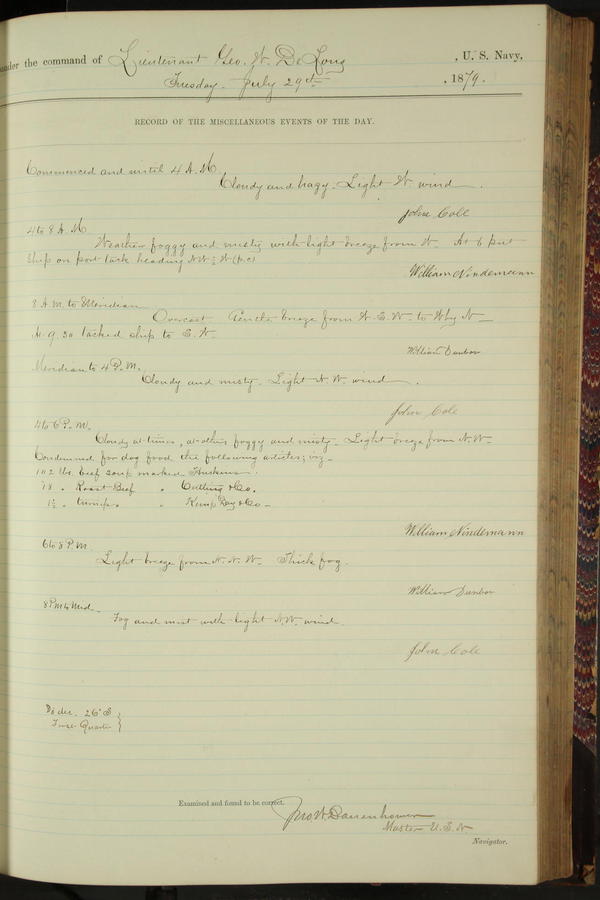 under the command of Lieutenant Geo. W. De Long, U. S. Navy,
Tuesday. July 29th, 1879.
RECORD OF THE MISCELLANEOUS EVENTS OF THE DAY.
Commenced and until 4 A. M.
Cloudy and hazy. Light W. wind.
John Cole
4 to 8 A. M.
Weather foggy and misty with light breeze from W. At 6 put
ship on port tack heading (p.c)
William Nindemann
8 A. M. to Meridian
Overcast Gentle breeze from to
At 9.30 tacked ship to
William Dunbar
Meridian to 4 P. M.
Cloudy and misty. Light N. W. wind.
John Cole
4 to 6 P. M.
Cloudy at times, at others foggy and misty. Light breeze from N. W.
Condemned for dog food the following articles; viz.
102 lbs. beef soup marked
18 " Roast Beef " Cutting & Co.
1½ " turnips " Kemp Day & Co.
William Nindemann
6 to 8 P. M.
Light breeze from N. N. W. Thick fog.
William Dunbar
8 P. M. to Mid.
Fog and mist with light N. W. wind.
John Cole
26° S }
Quarter }
Examined and found to be correct.
Jno. W. Danenhower
Master U. S. N.
Navigator.